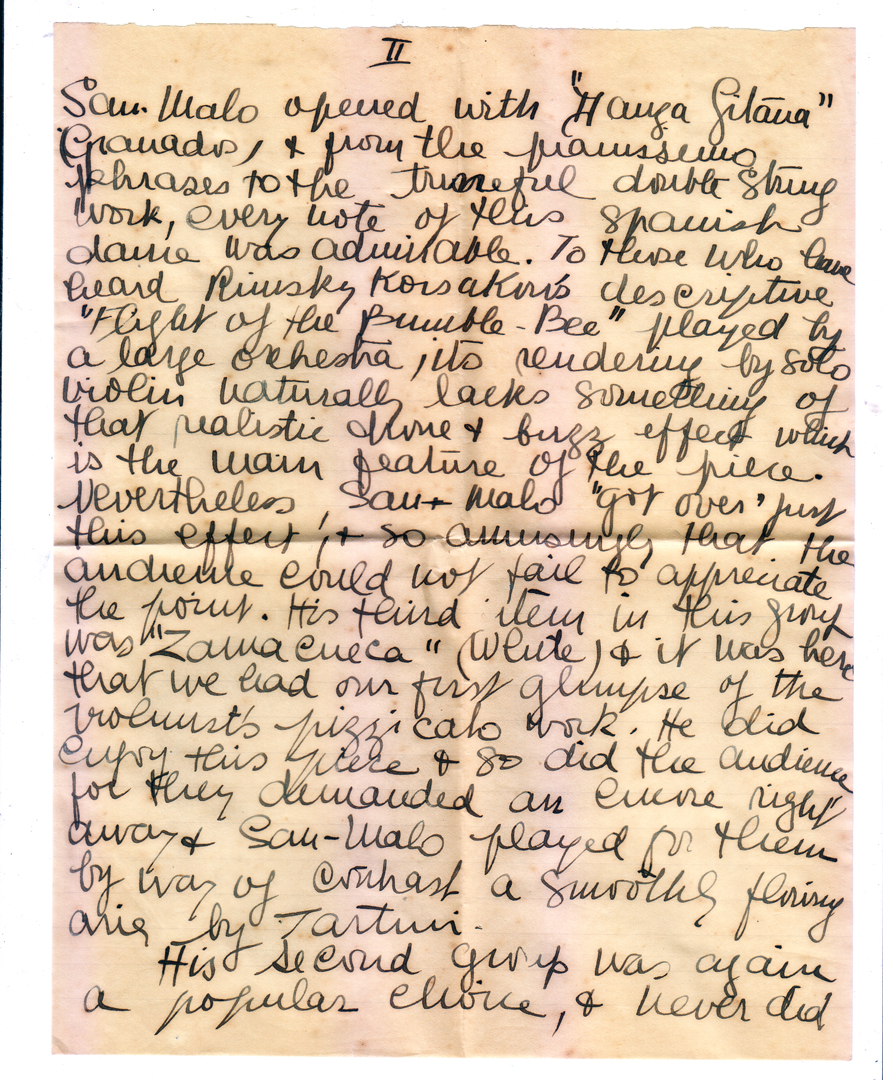 II
San-Malo opened with "Danza Gitana"
Granados, & from the pianissimo
phrases to the tuneful double string
work, every note of this spanish
dance was admirable. To those who have
heard Rimsky Korsakov's descriptive
"Flight of the Bumble-Bee" played by
a large orchestra, its rendering by solo
violin naturally lacks something of
that realistic drone & buzz effect which
is the main feature of the piece.
Nevertheless, San-Malo "got over" just
this effect, & so amusingly that the
audience could not fail to appreciate
the point. His third item in this group
was "Zamacueca" (White) & it was here
that we had our first glimpse of the
violinist's pizzicato work. He did
enjoy this piece & so did the audience
for they demanded an encore right
away & San-Malo played for them
by way of contrast a smoothly flowing
aria by Tartini.
His second group was again
a popular choice, & never did